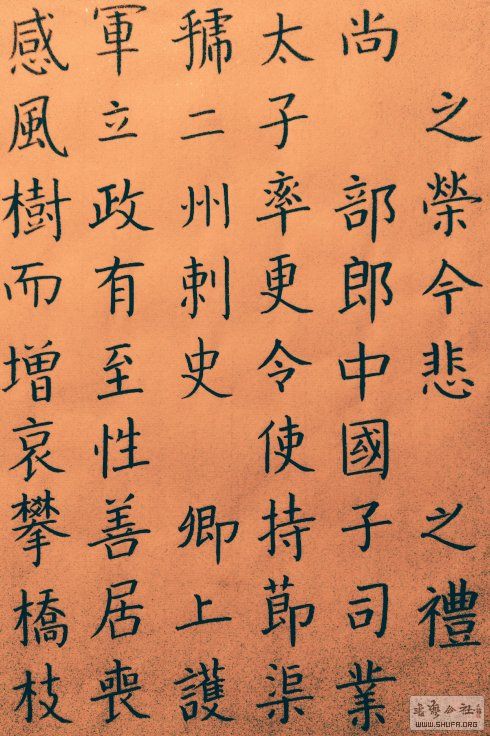 之榮今悲 之禮
尚 部郎中國子司業
太子率更令使持節渠
二州刺史 卿上護
軍立政有至性善居喪
感風樹而增哀攀橋枝
WWW.SHUFA.ORG